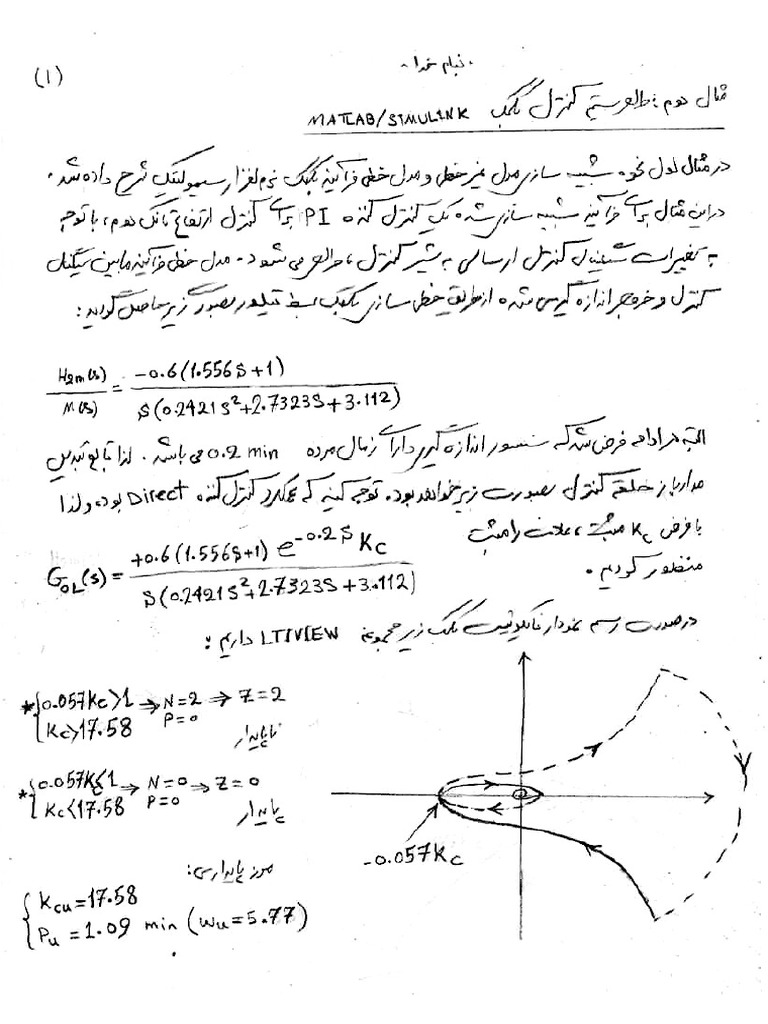 بنام خدا
(1)
مثال دوم: طراحی سیستم کنترل بکمک MATLAB/SIMULINK
در مثال اول نحوه شبیه سازی مدل غیرخطی و مدل خطی فرآیند بکمک نرم افزار سیمولینک شرح داده شد.
در این مثال برای فرآیند شبیه سازی شده یک کنترل کننده PI برای کنترل ارتفاع تانک دوم، با توجه
به تغییرات سیگنال کنترلی ارسالی به شیر کنترل، طراحی می شود. مدل خطی فرآیند مابین سیگنال
کنترل و خروجی اندازه گیری شده از طریق خطی سازی بکمک بسط تیلور بصورت زیر حاصل گردید:
H2m(s)/M(s) = -0.6(1.556S+1)/S(0.2421S²+2.7323S+3.112)
البته در ادامه فرض شد که سنسور اندازه گیری دارای زمان مرده 0.2 min می باشد. لذا تابع تبدیل
مدار باز حلقه کنترل بصورت زیر خواهد بود. توجه کنید که عملکرد کنترل کننده Direct بوده و لذا
با فرض Kc مثبت، علامت را مثبت
منظور کردیم.
GOL(s) = +0.6(1.556S+1) e^-0.2S Kc/S(0.2421S²+2.7323S+3.112)
در صورت رسم نمودار نایکوئیست بکمک زیر مجموعه LTIVIEW داریم:
*{0.057Kc>1 ⇒ N=2 ⇒ Z=2
Kc>17.58 P=0
ناپایدار
*{0.057Kc<1 ⇒ N=0 ⇒ Z=0
Kc<17.58 P=0
پایدار
-0.057Kc
مرز پایداری:
{Kcu=17.58
Pu=1.09 min (Wu=5.77)